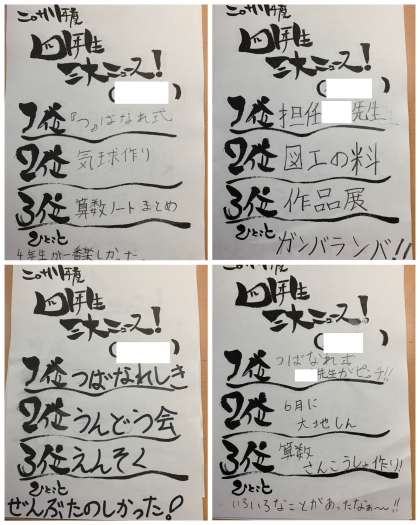 四年生
三大ニュース!
1位『つ』ばなれ式
2位 気球作り
3位 算数ノートまとめ
ひとこと
4年生が一番楽しかった
四年生
三大ニュース!
1位 担任 先生
2位 図工の料
3位 作品展
ひとこと
ガンバランバ!!
四年生
三大ニュース!
1位 つばなれしき
2位 うんどう会
3位 えんそく
ひとこと
ぜんぶたのしかった!
四年生
三大ニュース!
1位 つばなれ式
先生がピンチ!!
2位 6月に
大地しん
3位 算数
さんこうしょ作り!!
ひとこと
いろいろなことがあったなぁ〜!!